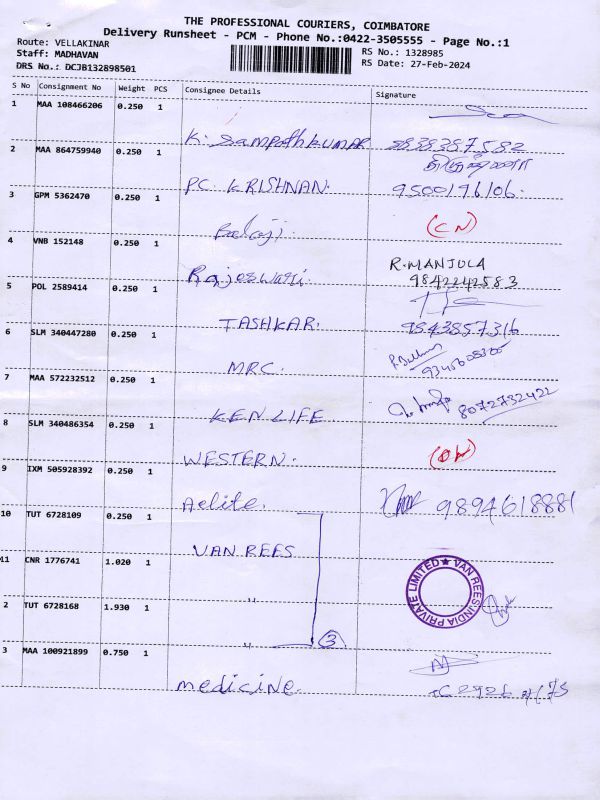 THE PROFESSIONAL COURIERS, COIMBATORE
Delivery Runsheet - PCM - Phone No.:0422-3505555 - Page No.:1
Route: VELLAKINAR
Staff: MADHAVAN
DRS No.: DCJB132898501
RS No.: 1328985
RS Date: 27-Feb-2024
S No Consignment No Weight PCS Consignee Details Signature
1 MAA 108466206 0.250 1
K. Sampathkumar 9838387582
2 MAA 864759940 0.250 1
P.C. KRISHNAN. 9500196106.
3 GPM 5362470 0.250 1
Balaji. (CN)
4 VNB 152148 0.250 1 R.MANJULA
Rajeswari. 9842242583
5 POL 2589414 0.250 1
TASHKAR. 9843857316
6 SLM 340447280 0.250 1
MRC.
7 MAA 572232512 0.250 1
KEN LIFE 8072732422
8 SLM 340486354 0.250 1
WESTERN.
9 IXM 505928392 0.250 1
Aelite. 9894618881
10 TUT 6728109 0.250 1
VAN REES
11 CNR 1776741 1.020 1
"
VAN REES INDIA PRIVATE LIMITED ★
2 TUT 6728168 1.930 1
" 3
3 MAA 100921899 0.750 1
medicine.